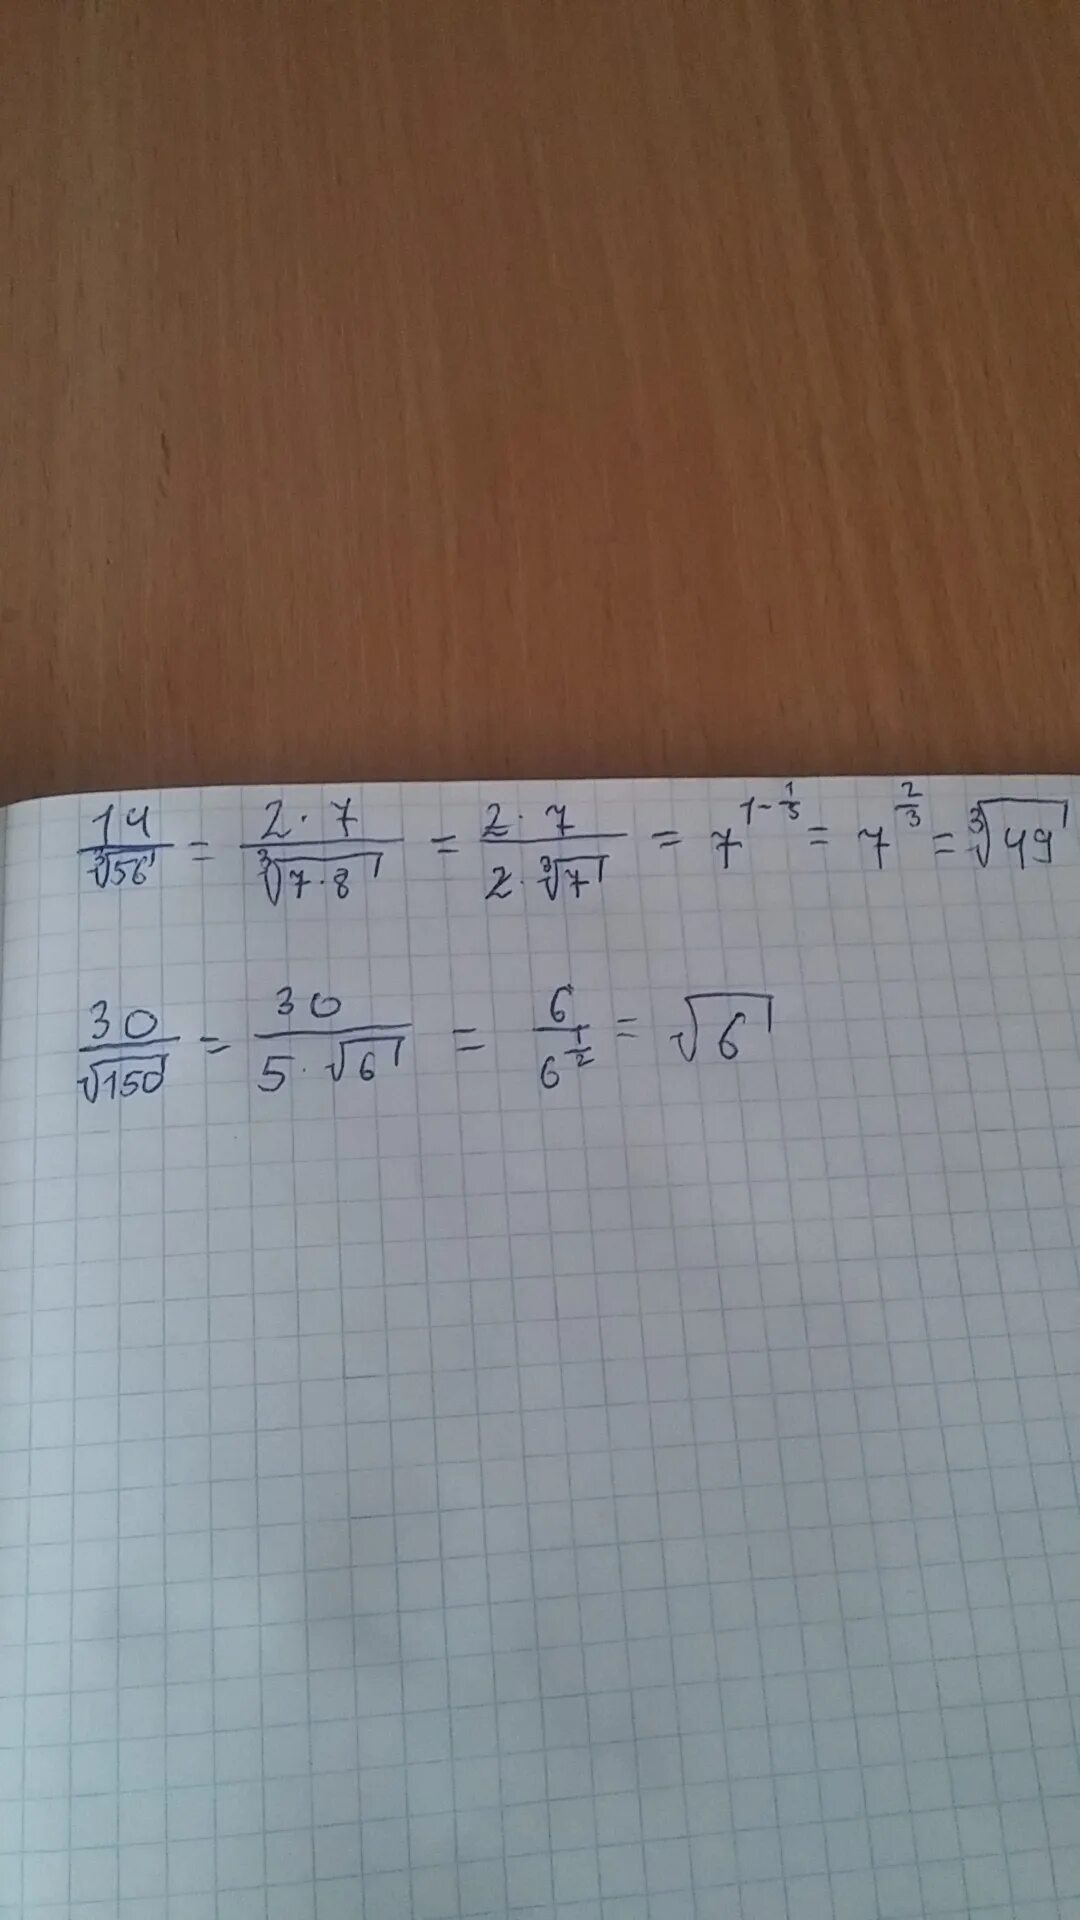 14/∛56 = 2·7/∛(7·8) = 2·7/(2·∛7) = 7^(1-1/3) = 7^(2/3) = ∛49
30/√150 = 30/(5·√6) = 6/6^(1/2) = √6